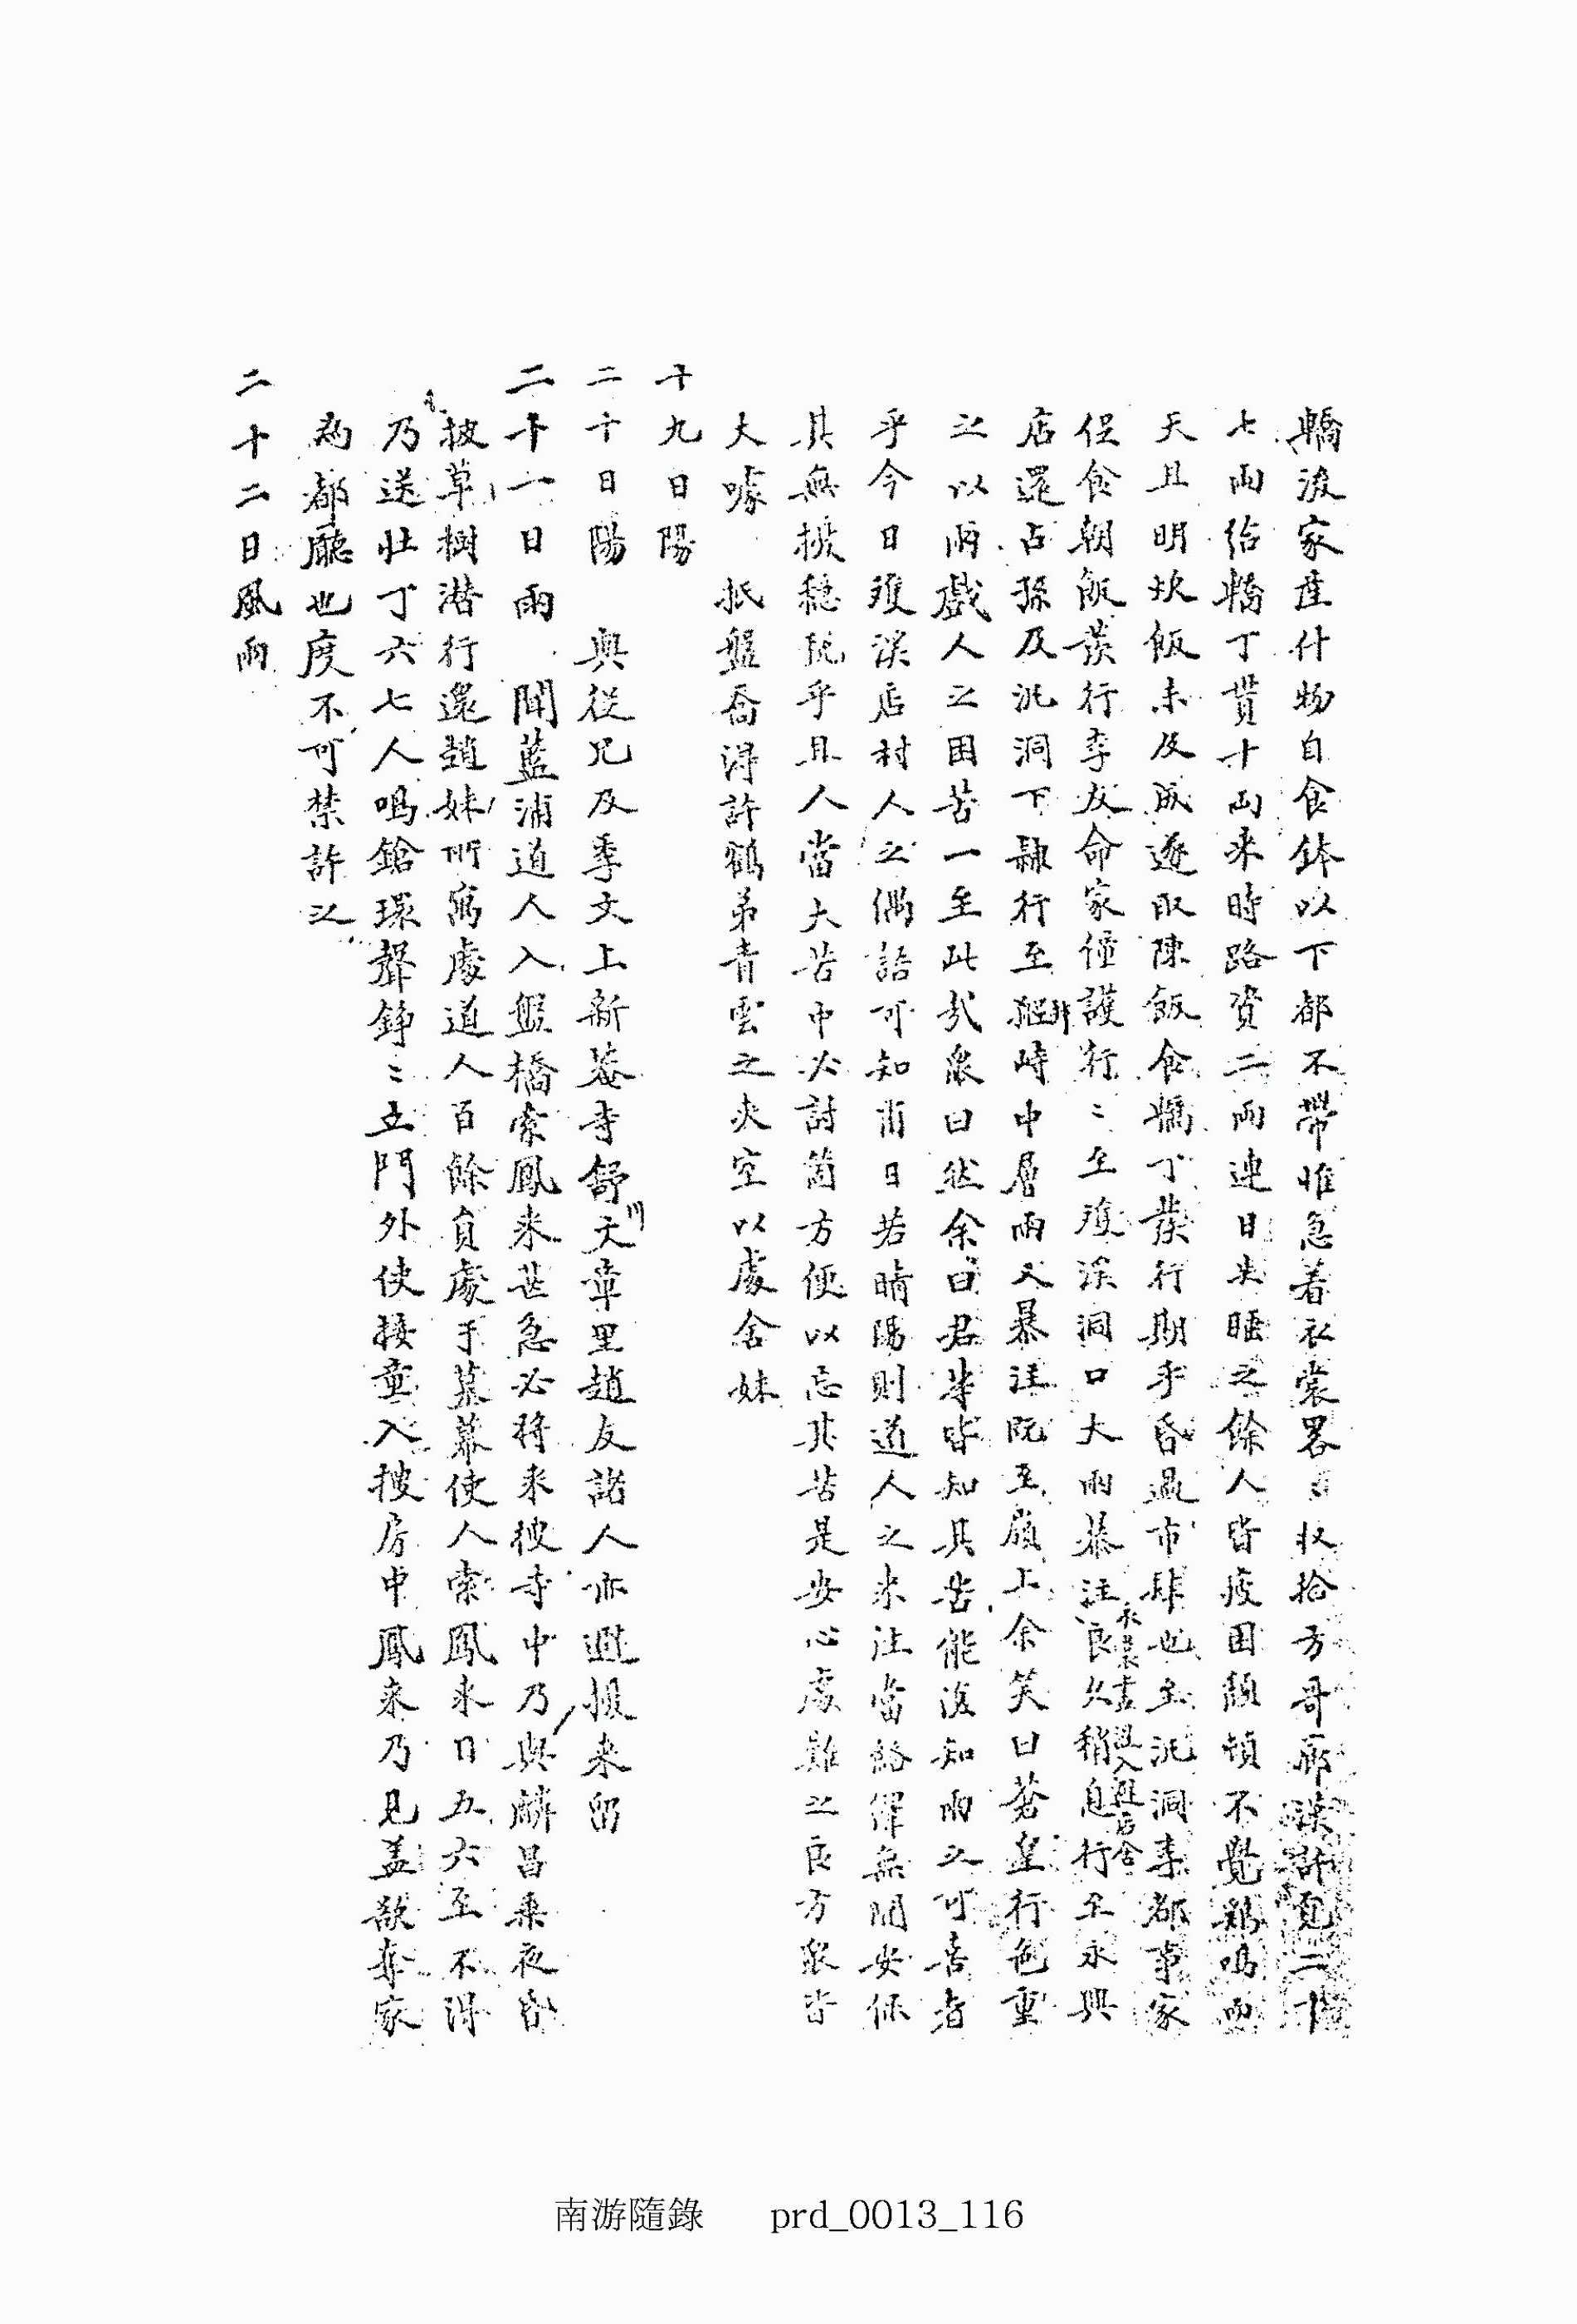 轎渡家産什物自食鉢以下都不帶惟急着衣裳畧〻収拾方哥廊漢許覓二十
七両給轎丁貰十両来時路資二両連日失睡之餘人皆疲困頹頓不覺鷄鳴而
天且明炊飯未及成遂取陳飯食轎丁發行期乎昏過市肆也至汎洞李都事家
促食朝飯發行李友命家僮護行〻至瓊溪洞口大雨暴注衣裳盡濕入避店舍良久稍息行至永興
店還占孫及汎洞下隷行至峙中層雨又暴注既至嶺上余笑曰蒼皇行色重
之以雨戲人之困苦一至此哉衆曰然余曰君輩皆知其苦能復知雨之可喜者
乎今日瓊溪店村人之偶語可知前日若晴陽則道人之来往當絡繹無間安保
其無撓稳阮乎且人當大苦中必討箇方便以忘其苦是安心處難之良方衆皆
大噱 抵盤喬得許鶴弟青雲之夾室以處舍妹
十九日陽
二十日陽 與從兄及季文上新菴寺舒川文章里趙友諾人亦避擾来留
二十一日雨 聞藍浦道人入盤橋索鳳来甚急必將来搜寺中乃與麟昌乘夜昏
披草樹潜行還趙妹所寓處道人百餘負處于墓幕使人索鳳来日五六至不得
乃送壯丁六七人鳴鎗環聲錚〻立門外使接童入搜房中鳳来乃見盖欲奪家
為都廳也度不可禁許之
二十二日風雨
南游隨錄 prd_0013_116